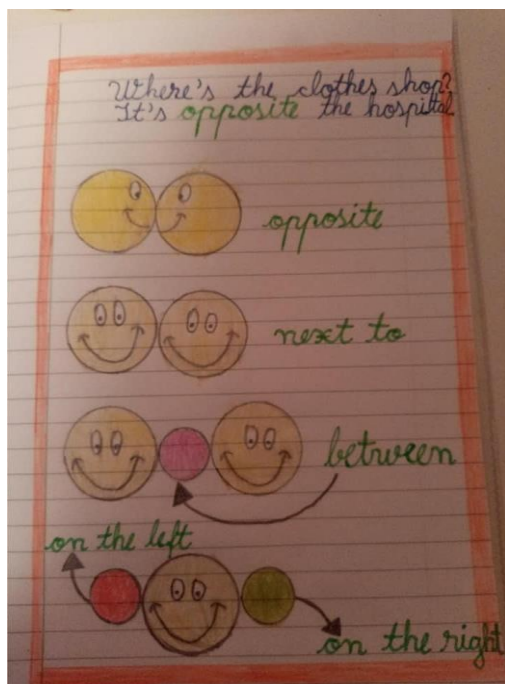 Where's the clothes shop?
It's opposite the hospital
opposite
next to
between
on the left
on the right